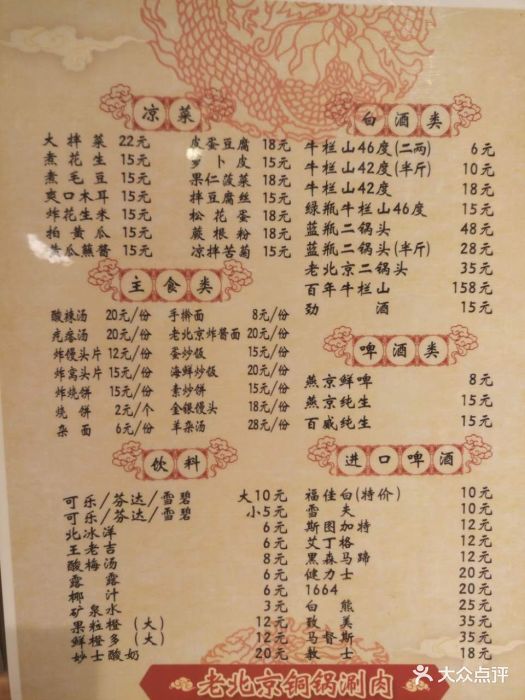 凉菜
大拌菜 22元
煮花生 15元
煮毛豆 15元
爽口木耳 15元
炸花生米 15元
拍黄瓜 15元
黄瓜蘸酱 15元
皮蛋豆腐 18元
萝卜皮 15元
果仁菠菜 18元
拌豆腐丝 15元
松花蛋 18元
蕨根粉 18元
凉拌苦菊 15元
主食类
酸辣汤 20元/份
疙瘩汤 20元/份
炸馒头片 12元/份
炸窝头片 15元/份
炸烧饼 15元/份
烧饼 2元/个
杂面 6元/份
手擀面 8元/份
老北京炸酱面 20元/份
蛋炒饭 15元/份
海鲜炒饭 20元/份
素炒饼 15元/份
金银馒头 18元/份
羊杂汤 28元/份
饮料
可乐/芬达/雪碧 大10元
可乐/芬达/雪碧 小5元
北冰洋 6元
王老吉 6元
酸梅汤 8元
露露 6元
椰汁 6元
矿泉水 3元
果粒橙(大) 12元
鲜橙多(大) 12元
妙士酸奶 20元
白酒类
牛栏山46度(二两) 6元
牛栏山42度(半斤) 10元
牛栏山42度 18元
绿瓶牛栏山46度 15元
蓝瓶二锅头 48元
蓝瓶二锅头(半斤) 28元
老北京二锅头 35元
百年牛栏山 158元
劲酒 15元
啤酒类
燕京鲜啤 8元
燕京纯生 15元
百威纯生 15元
进口啤酒
福佳白(特价) 10元
雪夫 10元
斯图加特 12元
艾丁格 12元
黑森马蹄 12元
健力士 20元
1664 20元
白熊 25元
致美 35元
马督斯 35元
教士 18元
老北京铜锅涮肉
大众点评